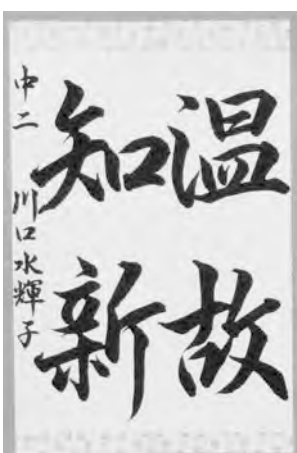 温故
知新
中二 川口水輝子